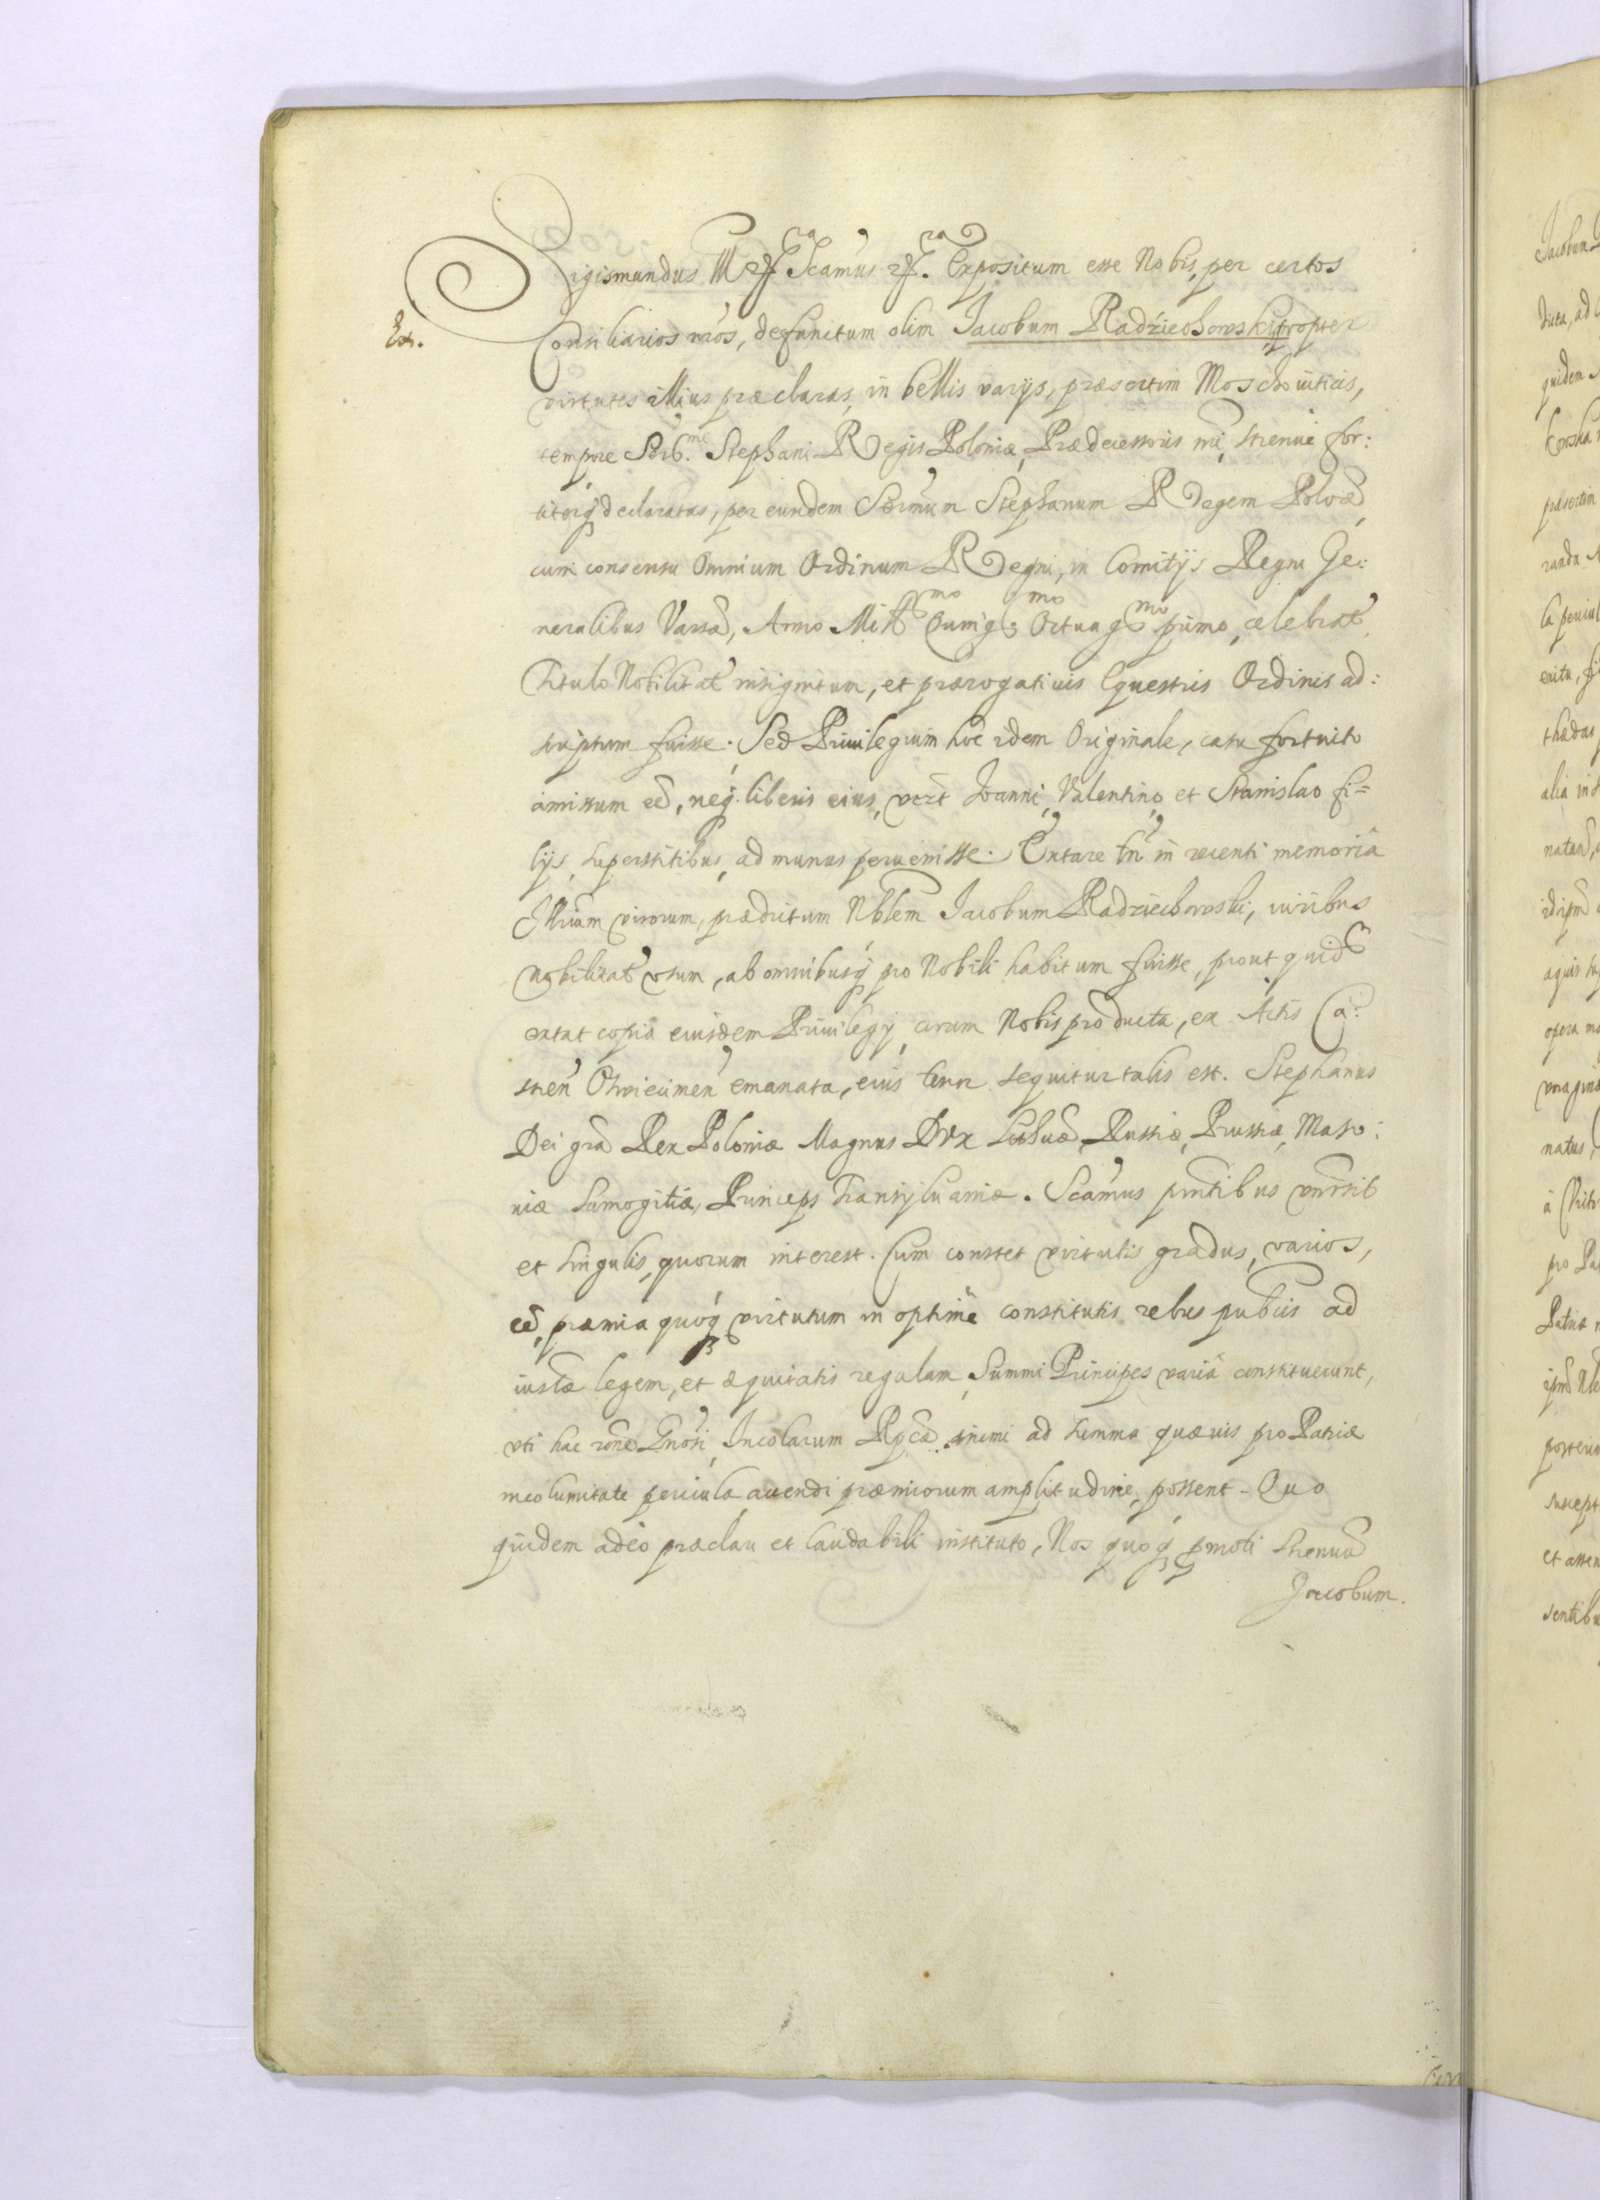 Sigismundus III etc. Scamus etc. Expositum esse Nobis, per certos
Ext. Consiliarios nros, defunctum olim Jacobum Radziechowski propter
virtutes illius præclaras, in bellis varijs, præsertim Moschouiticis,
tempore Ser. mi Stephani Regis Poloniæ, Prædecessoris nri, strenue for:
titerq declaratas, per eundem Sermum Stephanum Regem Polon,
cum consensu Omnium Ordinum Regni, in Comitijs Regni Ge:
neralibus Varsa, Anno Mill mo Quing mo Octuag mo primo, celebrat
Titulo Nobilitat insignitum, et prærogatiuis Equestris Ordinis ad:
scriptum fuisse. Sed Priuilegium hoc idem Originale, casu fortuito
amissum ee, neq liberis eius, vert Joanni, Valentino et Stanislao fi=
lijs, superstitibus, ad manus peruenisse. Extare tn in recenti memoria
Illrium virorum, prædictum Nblem Jacobum Radziechowski, iuribus
nobilitat usum, ab omnibusq pro Nobili habitum fuisse, prout quid
extat copia eiusdem Priuilegij coram Nobis producta, ex Actis Ca:
stren Oswiecimen emanata, cuius tenor sequitur talis est. Stephanus
Dei gra Rex Poloniæ Magnus Dux Lithua, Russiæ, Prussiæ, Maso:
uiæ Samogitiæ, Princeps Transyluaniæ. Scamus pntibus vnrsis
et singulis, quorum interest. Cum constet virtutis gradus, varios,
ee, præmia quoq virtutum in optime constitutis rebus publicis ad
iusta legem, et æquitatis regulam, Summi Principes varia constituerunt,
vti hac rone Gnosi, Incolarum Rpca animi ad summa quæuis pro Patriæ
incolumitate pericula, accendi præmiorum amplitudine, possent. Quo
quidem adeo præclaro et laudabili instituto, Nos quoq pmoti strenuu
Jacobum.